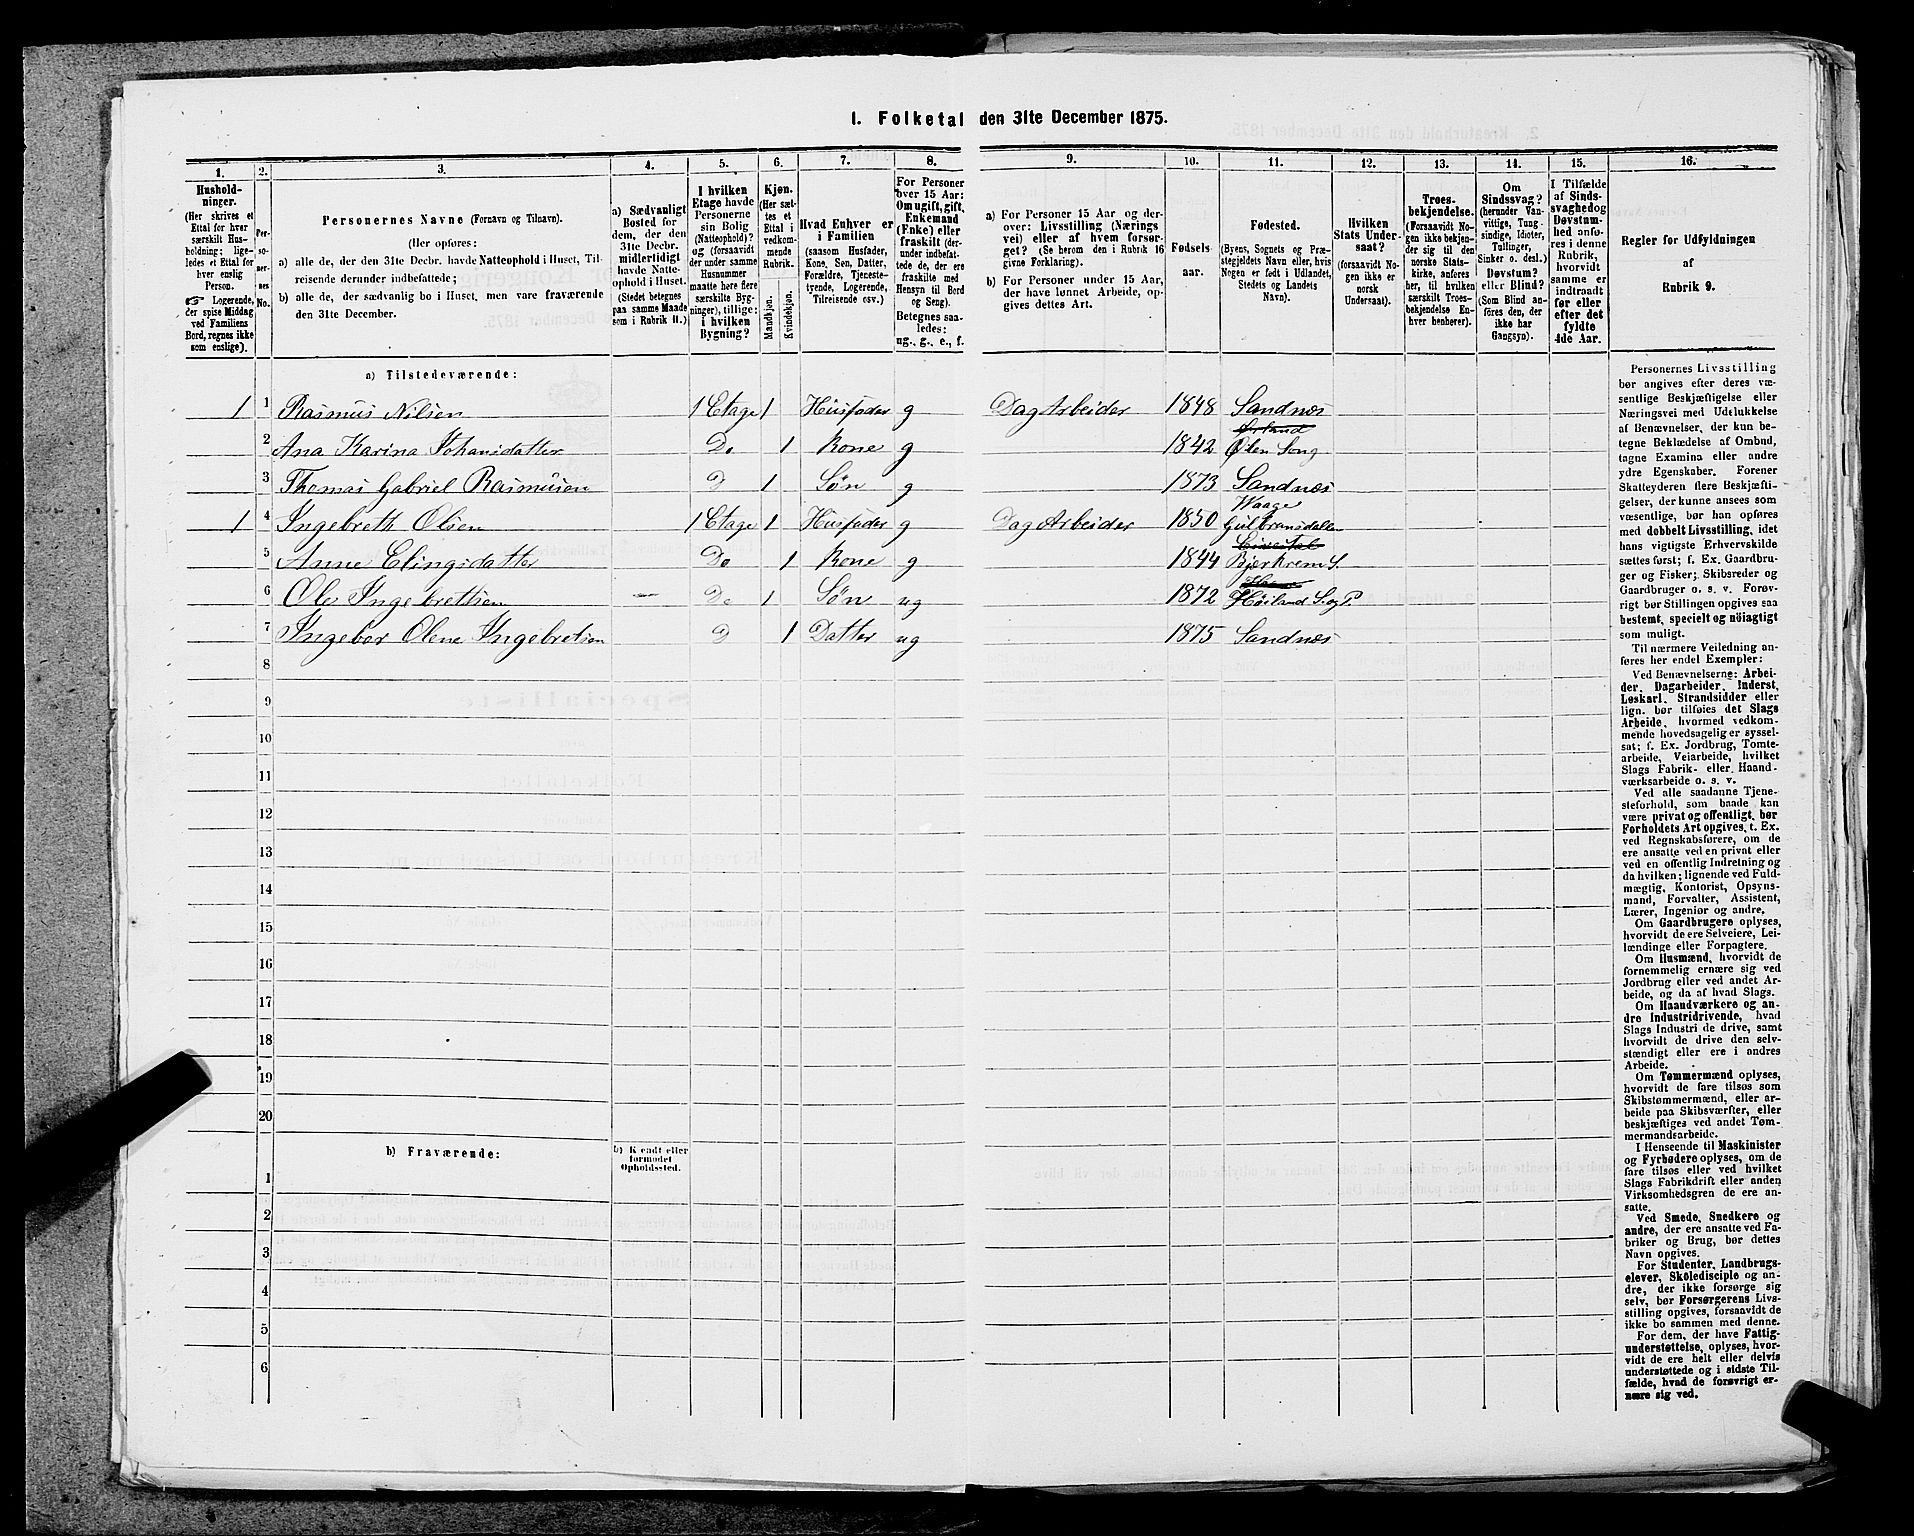 1. Folketal den 31te December 1875.
1. 2. 3. 4. 5. 6. 7. 8. 9. 10. 11. 12. 13. 14. 15. 16.
Hushold-
ninger.
(Her skrives et
Ettal for hver
særskilt Hus-
holdning; lige-
ledes et Ettal for
hver enslig
Person.
☞ Logerende,
der spise Middag
ved Familiens
Bord, regnes ikke
som enslige).
Per-
so-
ner-
nes
No.
Personernes Navne (Fornavn og Tilnavn).
(Her opføres:
a) alle de, der den 31te Decbr. havde Natteophold i Huset, Til-
reisende derunder indbefattede;
b) alle de, der sædvanlig bo i Huset, men vare fraværende
den 31te December.
a) Sædvanligt
Bosted for
dem, der den
31te Decbr.
midlertidigt
havde Natte-
ophold i Huset.
(Stedet betegnes
paa samme Maade
som i Rubrik 11.)
I hvilken
Etage havde
Personerne
sin Bolig
(Natteophold)?
og (forsaavidt
der under samme
Husnummer
maatte høre flere
særskilte Byg-
ninger), tillige:
i hvilken
Bygning?
Kjøn.
(Her sæt-
tes et
Ettal i
vedkom-
mende
Rubrik.
Mandkjøn.
Kvindekjøn.
Hvad Enhver er
i Familien
(saasom Husfader,
Kone, Søn, Datter,
Forældre, Tjeneste-
tyende, Logerende,
Tilreisende osv.)
For Personer
over 15 Aar:
Om ugift, gift,
Enkemand
(Enke) eller
fraskilt (der-
under indbefat-
tede de, der ere
fraskilte med
Hensyn til Bord
og Seng).
Betegnes saa-
ledes:
ug., g., e., f.
a) For Personer 15 Aar og der-
over: Livsstilling (Nærings
vei) eller af hvem forsør-
get? (Se herom den i Rubrik 16
givne Forklaring).
b) For Personer under 15 Aar,
der have lønnet Arbeide, op-
gives dettes Art.
Fødsels-
aar.
Fødested.
(Byens, Sognets og Præ-
stegjeldets Navn eller, hvis
Nogen er født i Udlandet,
Stedets og Landets
Navn).
Hvilken
Stats Under-
saat?
(forsaavidt No-
gen ikke er
norsk
Undersaat).
Troes-
bekjendelse.
(Forsaavidt No-
gen ikke bekjen-
der sig til den
norske Stats-
kirke, anføres
her, til hvilken
særskilt Troes-
bekjendelse En-
hver henhører).
Om
Sindssvag?
(herunder Van-
vittige, Tung-
sindige, Idioter,
Tullinger,
Sinker o. desl.)
Døvstum?
eller Blind?
(Som Blind an-
føres den, der
ikke har
Gangsyn).
I Tilfælde
af Sinds-
svaghed og
Døvstum-
hed anfø-
res i denne
Rubrik,
hvorvidt
samme er
indtraadt
før eller
efter det
fyldte
4de Aar.
Regler for Udfyldningen
af
Rubrik 9.
a) Tilstedeværende:
1 1 Rasmus Nilsen 1 Etage 1 Husfader g Dag Arbeider 1848 Sandnæs
2 Ana Karina Johansdatter Do 1 Kone g 1842 Ølen Sog
3 Thomas Gabriel Rasmusen D 1 Søn g 1873 Sandnæs
1 4 Ingebreth Olsen 1 Etage 1 Husfader g Dag Arbeider 1850 Waage Gulbransdalen
5 Anne Elingsdatter Do 1 Kone g 1844 Bjerkrem S.
6 Ole Ingebretsen Do 1 Søn ug 1872 Høiland S. og P.
7 Ingebor Olene Ingebretsen D 1 Datter ug 1875 Sandnæs
8
9
10
11
12
13
14
15
16
17
18
19
20
b) Fraværende:
b) Kjendt eller
formodet
Opholdssted.
1
2
3
4
5
6
Personernes Livsstilling
bør angives efter deres væ-
sentlige Beskjæftigelse eller
Næringsvei med Udelukkelse
af Benævnelser, der kun be-
tegne Beklædelse af Ombud,
tagne Examina eller andre
ydre Egenskaber. Forener
Skatteyderen flere Beskjæfti-
gelser, der kunne ansees som
væsentlige, bør han opføres
med dobbelt Livsstilling, idet
hans vigtigste Erhvervskilde
sættes først; f. Ex. Gaardbru-
ger og Fisker; Skibsreder og
Gaardbruger o. s. v. Forøv-
rigt bør Stillingen opgives saa
bestemt, specielt og nøiagtigt
som muligt.
Til nærmere Veiledning an-
føres her endel Exempler:
Ved Benævnelserne: Arbei-
der, Dagarbeider, Inderst,
Løskarl, Strandsidder eller
lign. bør tilføies det Slags
Arbeide, hvormed vedkom-
mende hovedsagelig er syssel-
sat; f. Ex. Jordbrug, Tomte-
arbeide, Veiarbeide, hvilket
Slags Fabrik- eller Haand-
værksarbeide o. s. v.
Ved alle saadanne Tjene-
steforhold, som baade kan
være privat og offentligt, bør
Forholdets Art opgives, t. Ex.
ved Regnskabsførere, om de
ere ansatte ved en privat eller
ved en offentlig Indretning og
da hvilken; lignende ved Fuld-
mægtig, Kontorist, Opsyns-
mand, Forvalter, Assistent,
Lærer, Ingeniør og andre.
Om Gaardbrugere oplyses,
hvorvidt de ere Selveiere, Lei-
lændinge eller Forpagtere.
Om Husmænd, hvorvidt de
fornemmelig ernære sig ved
Jordbrug eller ved andet Ar-
beide, og da af hvad Slags.
Om Haandværkere og an-
dre Industridrivende, hvad
Slags Industri de drive, samt
hvorvidt de drive den selv-
stændigt eller ere i andres
Arbeide.
Om Tømmermænd oplyses,
hvorvidt de fare tilsøs som
Skibstømmermænd, eller ar-
beide paa Skibsværfter, eller
beskjæftiges ved andet Tøm-
mermandsarbeide.
I Henseende til Maskinister
og Fyrbødere oplyses, om de
fare tilsøs eller ved hvilket
Slags Fabrikdrift eller anden
Virksomhedsgren de ere an-
satte.
Ved Smede, Snedkere og
andre, der ere ansatte ved Fa-
briker og Brug, bør dettes
Navn opgives.
For Studenter, Landbrugs-
elever, Skoledisciple og an-
dre, der ikke forsørge sig
selv, bør Forsørgerens Livs-
stilling opgives, forsaavidt de
ikke bo sammen med denne.
For dem, der have Fattig-
understøttelse, oplyses, hvor-
vidt de ere helt eller delvis
understøttede og i sidste Til-
fælde, hvad de forøvrigt er-
nære sig ved.